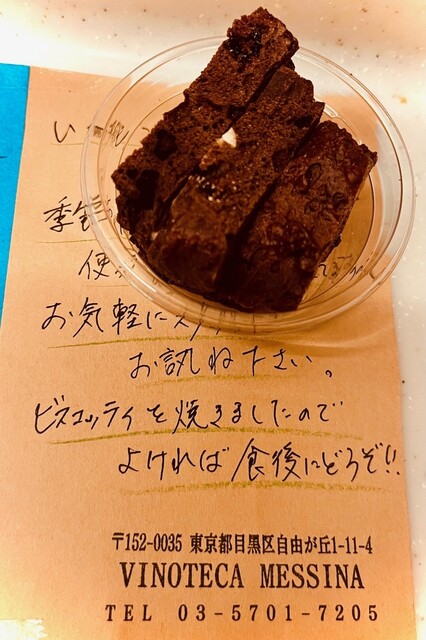 い
季節
使
お気軽にスタッフ
お訊ね下さい。
ビスコッティを焼きましたので
よければ食後にどうぞ!!
〒152-0035 東京都目黒区自由が丘1-11-4
VINOTECA MESSINA
TEL 03-5701-7205